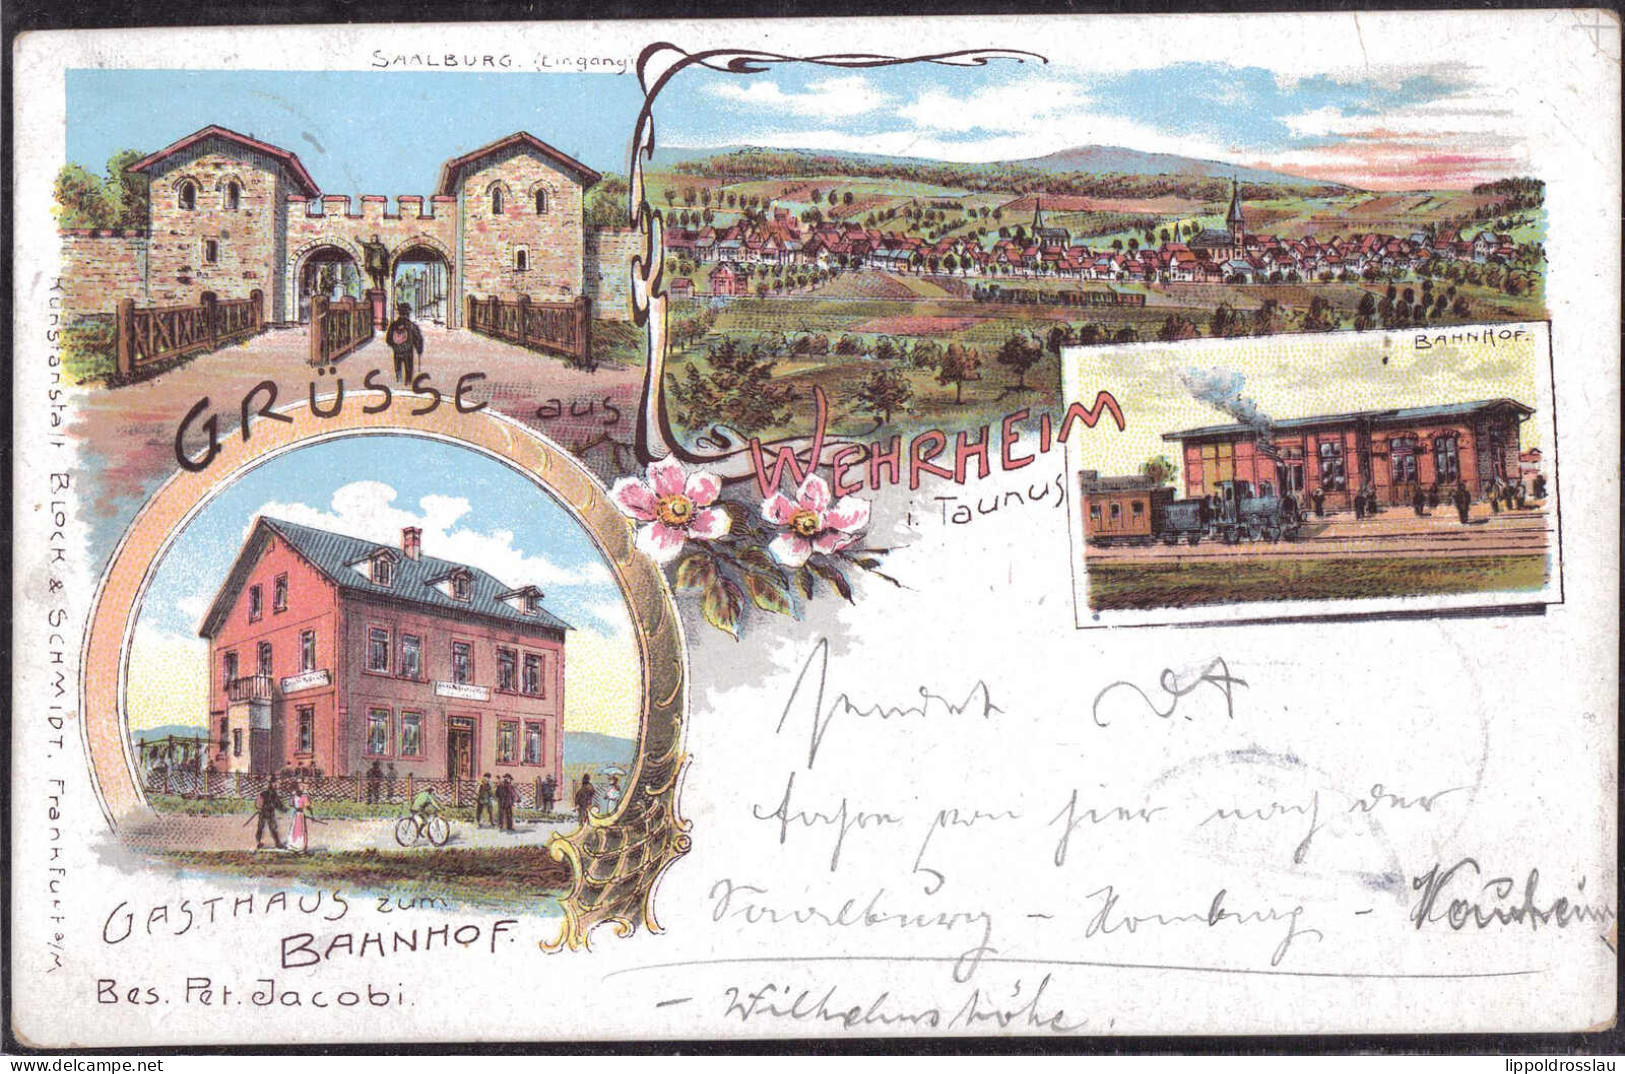 SAALBURG. (Eingang)
GRÜSSE aus
WEHRHEIM
i. Taunus
BAHNHOF.
GASTHAUS zum
BAHNHOF.
Bes. Pet. Jacobi.
Kunstanstalt BLOCK & SCHMIDT, Frankfurt a/M
sendet
fahre von hier nach der
Saalburg - Homburg - Nauheim
- Wilhelmshöhe.
lippoldrosslau